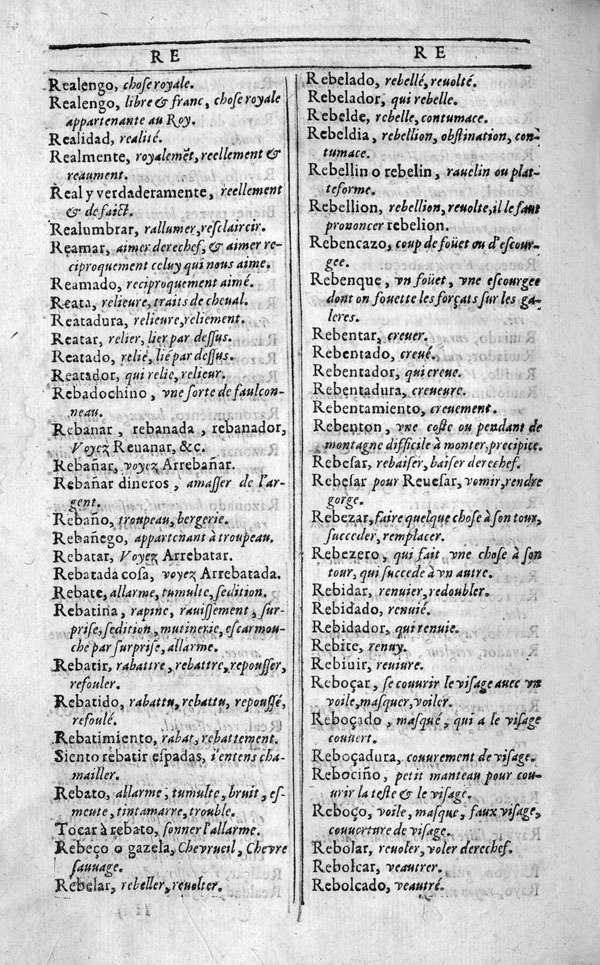 RE
Realengo, chose royale.
Realengo, libre & franc, chose royale
appartenante au Roy.
Realidad, realité.
Realmente, royalemẽt, reellement &
reaument.
Real y verdaderamente, reellement
& de faict.
Realumbrar, rallumer, resclaircir.
Reamar, aimer derechef, & aimer re-
ciproquement celuy qui nous aime.
Reamado, reciproquement aimé.
Reata, relieure, traits de cheual.
Reatadura, relieure, reliement.
Reatar, relier, lier par dessus.
Reatado, relié, lié par dessus.
Reatador, qui relie, relieur.
Rebadochino, vne sorte de faulcon-
neau.
Rebanar, rebanada, rebanador,
Voyez Reuanar, &c.
Rebañar, voyez Arrebañar.
Rebañar dineros, amasser de l'ar-
gent.
Rebaño, troupeau, bergerie.
Rebañego, appartenant à troupeau.
Rebatar, Voyez Arrebatar.
Rebatada cosa, voyez Arrebatada.
Rebate, allarme, tumulte, sedition.
Rebatina, rapine, rauissement, sur-
prise, sedition, mutinerie, escarmou-
che par surprise, allarme.
Rebatir, rabattre, rebattre, repousser,
refouler.
Rebatido, rabattu, rebattu, repoussé,
refoulé.
Rebatimiento, rabat, rebattement.
Siento rebatir espadas, i'entens cha-
mailler.
Rebato, allarme, tumulte, bruit, es-
meute, tintamarre, trouble.
Tocar à rebato, sonner l'allarme.
Rebeço o gazela, Cheureuil, Cheure
sauuage.
Rebelar, rebeller, reuolter.
RE
Rebelado, rebellé, reuolté.
Rebelador, qui rebelle.
Rebelde, rebelle, contumace.
Rebeldia, rebellion, obstination, con-
tumace.
Rebellin o rebelin, rauelin ou plat-
teforme.
Rebellion, rebellion, reuolte, il le faut
prononcer rebelion.
Rebencazo, coup de foüet ou d'escour-
gee.
Rebenque, vn foüet, vne escourgee
dont on fouette les forçats sur les ga-
leres.
Rebentar, creuer.
Rebentado, creué.
Rebentador, qui creue.
Rebentadura, creueure.
Rebentamiento, creuement.
Rebenton, vne coste ou pendant de
montagne difficile à monter, precipice.
Rebesar, rebaiser, baiser derechef.
Rebesar pour Reuesar, vomir, rendre
gorge.
Rebezar, faire quelque chose à son tour,
succeder, remplacer.
Rebezero, qui fait vne chose à son
tour, qui succede à vn autre.
Rebidar, renuier, redoubler.
Rebidado, renuié.
Rebidador, qui renuie.
Rebite, renuy.
Rebiuir, reuiure.
Reboçar, se couurir le visage auec vn
voile, masquer, voiler.
Reboçado, masqué, qui a le visage
couuert.
Reboçadura, couurement de visage.
Rebociño, petit manteau pour cou-
urir la teste & le visage.
Reboço, voile, masque, faux visage,
couuerture de visage.
Rebolar, reuoler, voler derechef.
Rebolcar, veautrer.
Rebolcado, veautré.